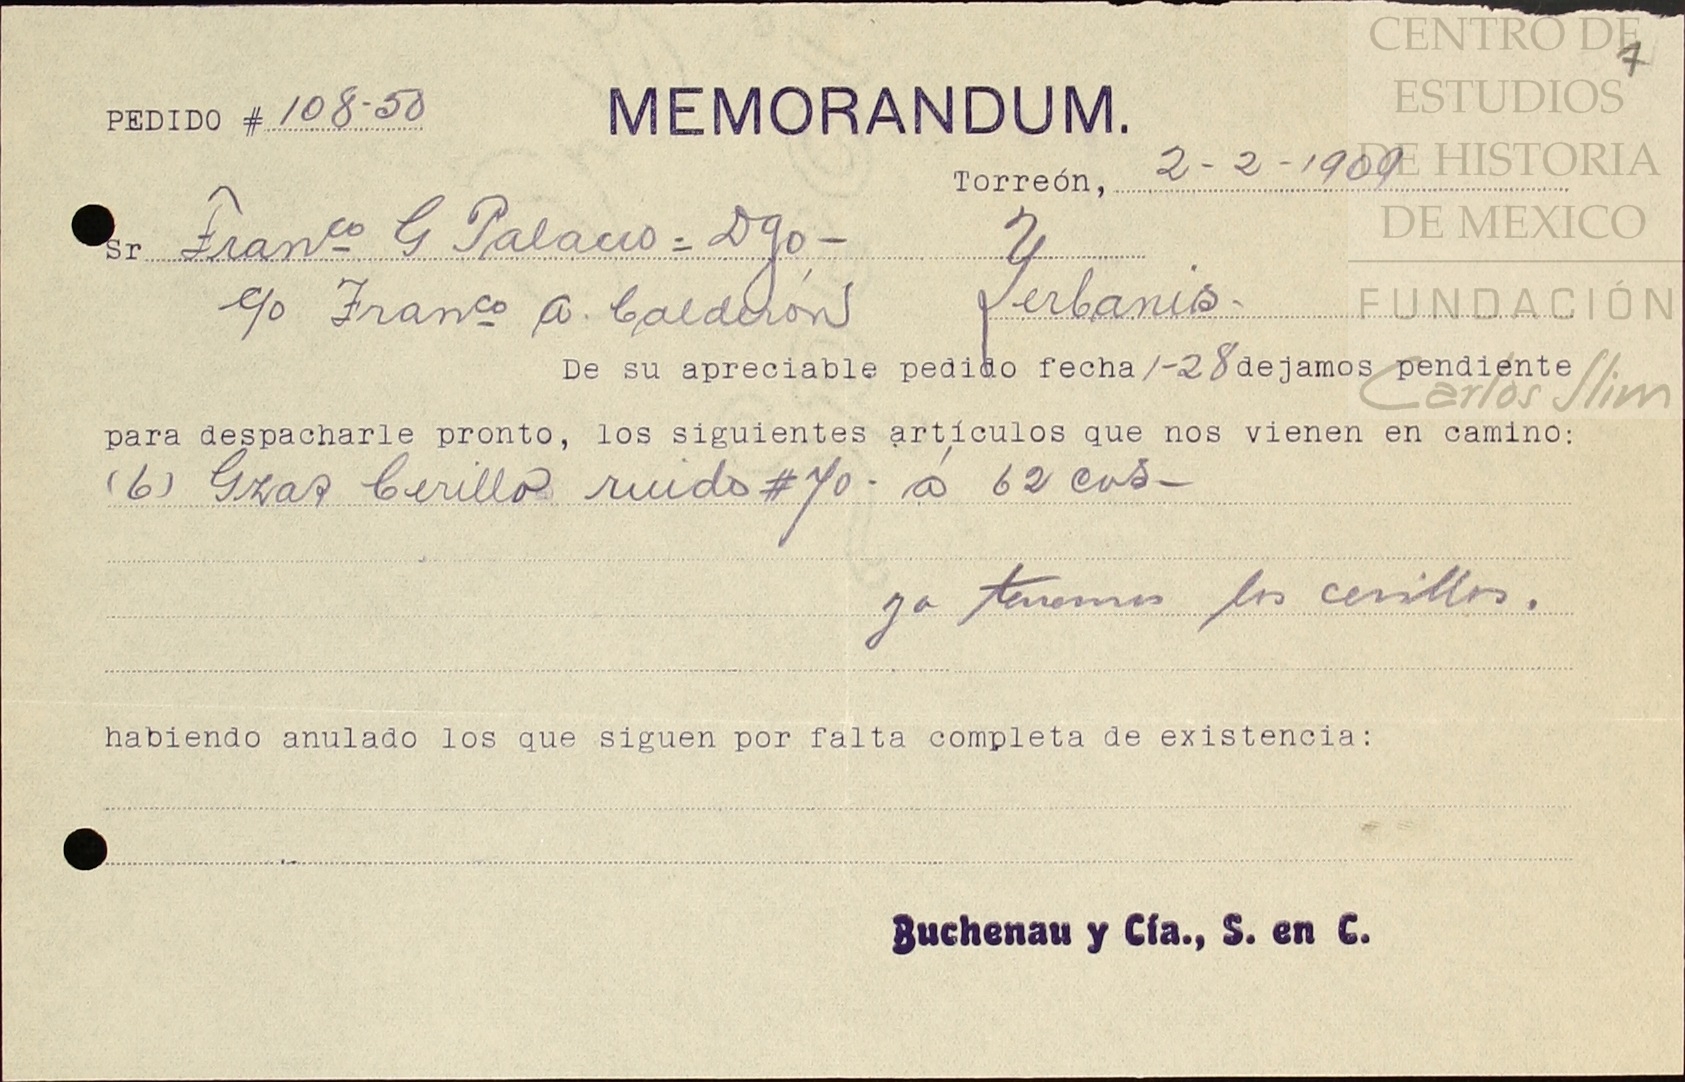 CENTRO DE
ESTUDIOS
DE HISTORIA
DE MEXICO
FUNDACIÓN
Carlos Slim
7
PEDIDO # 108-50
MEMORANDUM.
Torreón, 2-2-1909
Sr Franco G Palacio = Dgo - y
c/o Franco A. Calderón Yerbanis.
De su apreciable pedido fecha 1-28 dejamos pendiente
para despacharle pronto, los siguientes artículos que nos vienen en camino:
(6) Gzas Cerillos ruido #70. á 62 cvs -
ya tenemos los cerillos.
habiendo anulado los que siguen por falta completa de existencia:
Buchenau y Cía., S. en C.